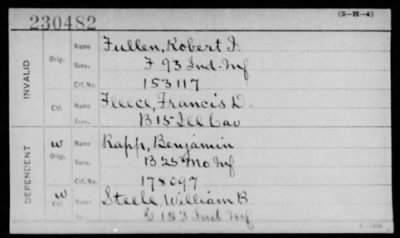 230482
(3-H-4)
INVALID
Orig.
Name Fullen, Robert J.
Serv. F 93 Ind. Inf
Ctf. No. 153117
Ctf.
Name Fleece, Francis D.
Serv. B 15 Ill Cav
DEPENDENT
W
Orig.
Name Rapp, Benjamin
Serv. B 25 Mo Inf
Ctf. No. 178097
W
Ctf.
Name Steele, William B.
Serv. 153 Ind Inf